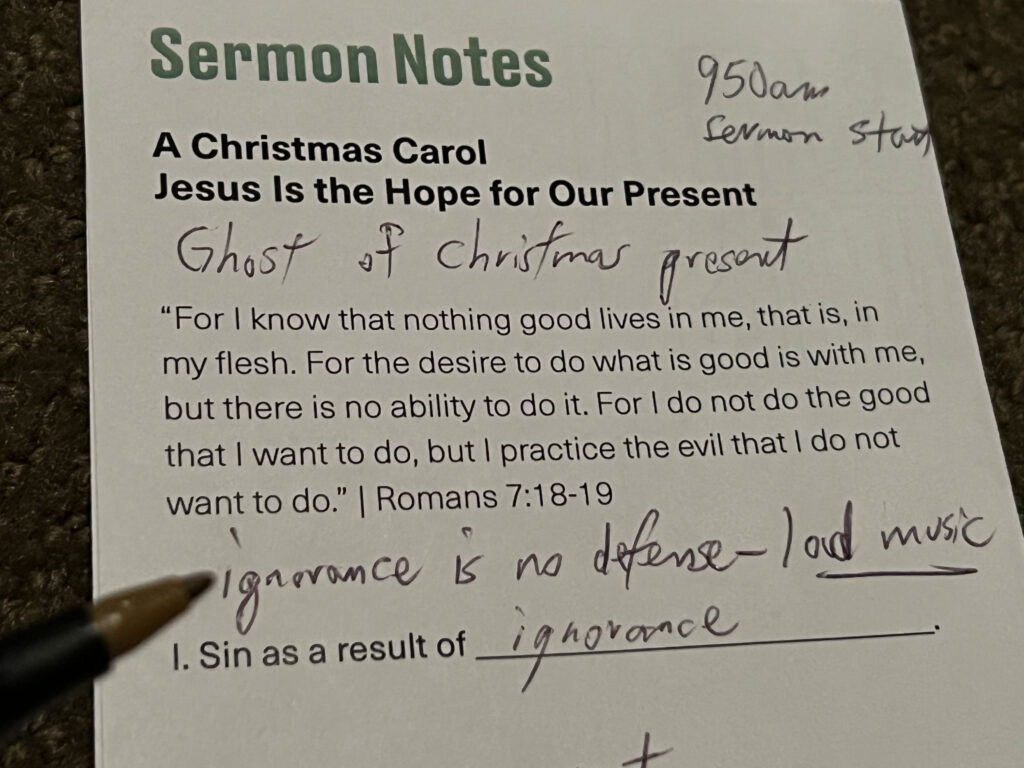 Sermon Notes
950am
sermon start
A Christmas Carol
Jesus Is the Hope for Our Present
Ghost of Christmas present
“For I know that nothing good lives in me, that is, in
my flesh. For the desire to do what is good is with me,
but there is no ability to do it. For I do not do the good
that I want to do, but I practice the evil that I do not
want to do.” | Romans 7:18-19
ignorance is no defense – loud music
I. Sin as a result of ignorance.